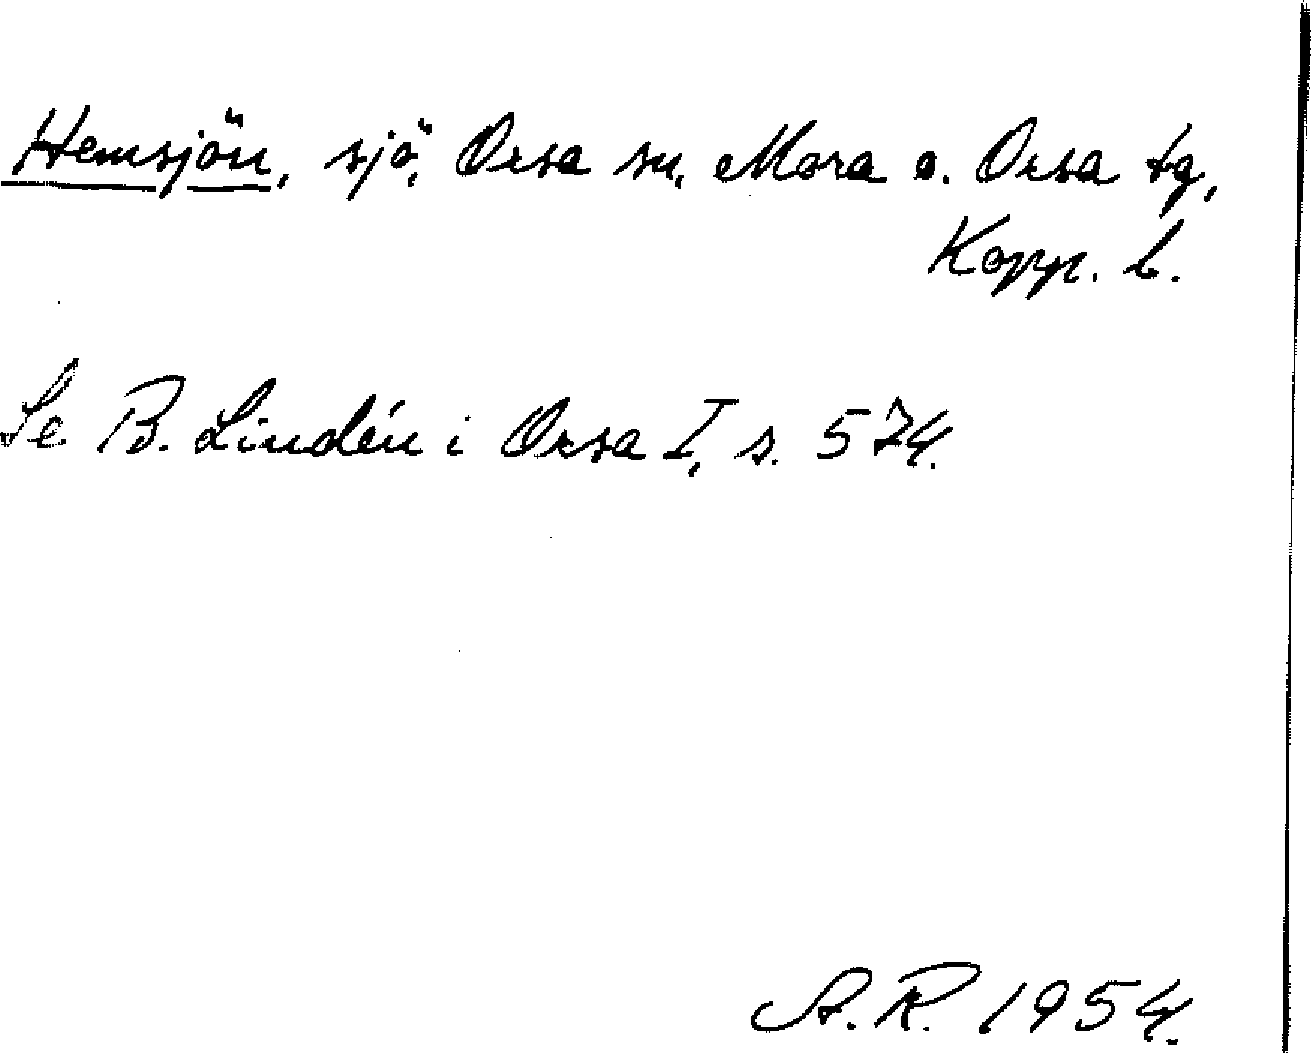 Hemsjön, sjö, Orsa sn, Mora o. Orsa tg,
Kopp. l.
Se B. Lindén i Orsa I, s. 574.
A.R. 1954.